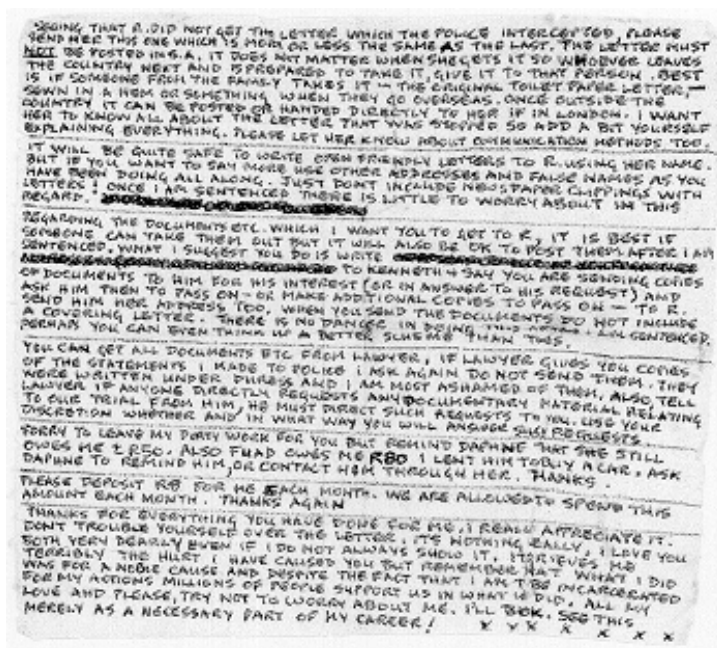 SEEING THAT R. DID NOT GET THE LETTER WHICH THE POLICE INTERCEPTED, PLEASE
SEND HER THIS ONE WHICH IS MORE OR LESS THE SAME AS THE LAST. THE LETTER MUST
NOT BE POSTED IN S.A. IT DOES NOT MATTER WHEN SHE GETS IT SO WHOEVER LEAVES
THE COUNTRY NEXT AND IS PREPARED TO TAKE IT, GIVE IT TO THAT PERSON. BEST
IS IF SOMEONE FROM THE FAMILY TAKES IT — THE ORIGINAL TOILET PAPER LETTER, —
SEWN IN A HEM OR SOMETHING WHEN THEY GO OVERSEAS. ONCE OUTSIDE THE
COUNTRY IT CAN BE POSTED OR HANDED DIRECTLY TO HER IF IN LONDON. I WANT
HER TO KNOW ALL ABOUT THE LETTER THAT WAS STOPPED SO ADD A BIT YOURSELF
EXPLAINING EVERYTHING. PLEASE LET HER KNOW ABOUT COMMUNICATION METHODS TOO.
IT WILL BE QUITE SAFE TO WRITE OPEN FRIENDLY LETTERS TO R. USING HER NAME.
BUT IF YOU WANT TO SAY MORE USE OTHER ADDRESSES AND FALSE NAMES AS YOU
HAVE BEEN DOING ALL ALONG. JUST DONT INCLUDE NEWSPAPER CLIPPINGS WITH
LETTERS! ONCE I AM SENTENCED THERE IS LITTLE TO WORRY ABOUT IN THIS
REGARD.
REGARDING THE DOCUMENTS ETC. WHICH I WANT YOU TO GET TO R, IT IS BEST IF
SOMEONE CAN TAKE THEM OUT BUT IT WILL ALSO BE OK TO POST THEM AFTER I AM
SENTENCED. WHAT I SUGGEST YOU DO IS WRITE
TO KENNETH & SAY YOU ARE SENDING COPIES
OF DOCUMENTS TO HIM FOR HIS INTEREST (OR IN ANSWER TO HIS REQUEST) AND
ASK HIM THEN TO PASS ON — OR MAKE ADDITIONAL COPIES TO PASS ON — TO R.
SEND HIM HER ADDRESS TOO. WHEN YOU SEND THE DOCUMENTS DO NOT INCLUDE
A COVERING LETTER. THERE IS NO DANGER IN DOING THIS AFTER I AM SENTENCED.
PERHAPS YOU CAN EVEN THINK UP A BETTER SCHEME THAN THIS.
YOU CAN GET ALL DOCUMENTS ETC FROM LAWYER, IF LAWYER GIVES YOU COPIES
OF THE STATEMENTS I MADE TO POLICE I ASK AGAIN DO NOT SEND THEM. THEY
WERE WRITTEN UNDER DURESS AND I AM MOST ASHAMED OF THEM, ALSO, TELL
LAWYER IF ANYONE DIRECTLY REQUESTS ANY DOCUMENTARY MATERIAL RELATING
TO OUR TRIAL FROM HIM, HE MUST DIRECT SUCH REQUESTS TO YOU. USE YOUR
DISCRETION WHETHER AND IN WHAT WAY YOU WILL ANSWER SUCH REQUESTS.
SORRY TO LEAVE MY DIRTY WORK FOR YOU BUT REMIND DAPHNE THAT SHE STILL
OWES ME ± R50. ALSO FUAD OWES ME R80 I LENT HIM TO BUY A CAR. ASK
DAPHNE TO REMIND HIM, OR CONTACT HIM THROUGH HER. THANKS.
PLEASE DEPOSIT R8 FOR ME EACH MONTH. WE ARE ALLOWED TO SPEND THIS
AMOUNT EACH MONTH. THANKS AGAIN
THANKS FOR EVERYTHING YOU HAVE DONE FOR ME, I REALLY APPRECIATE IT.
DONT TROUBLE YOURSELF OVER THE LETTER. ITS NOTHING REALLY, I LOVE YOU
BOTH VERY DEARLY EVEN IF I DO NOT ALWAYS SHOW IT. IT GRIEVES ME
TERRIBLY THE HURT I HAVE CAUSED YOU BUT REMEMBER THAT WHAT I DID
WAS FOR A NOBLE CAUSE AND DESPITE THE FACT THAT I AM T'BE INCARCERATED
FOR MY ACTIONS MILLIONS OF PEOPLE SUPPORT US IN WHAT WE DID. ALL MY
LOVE AND PLEASE, TRY NOT TO WORRY ABOUT ME. I'LL B OK. SEE THIS
MERELY AS A NECESSARY PART OF MY CAREER! X X X X X X X